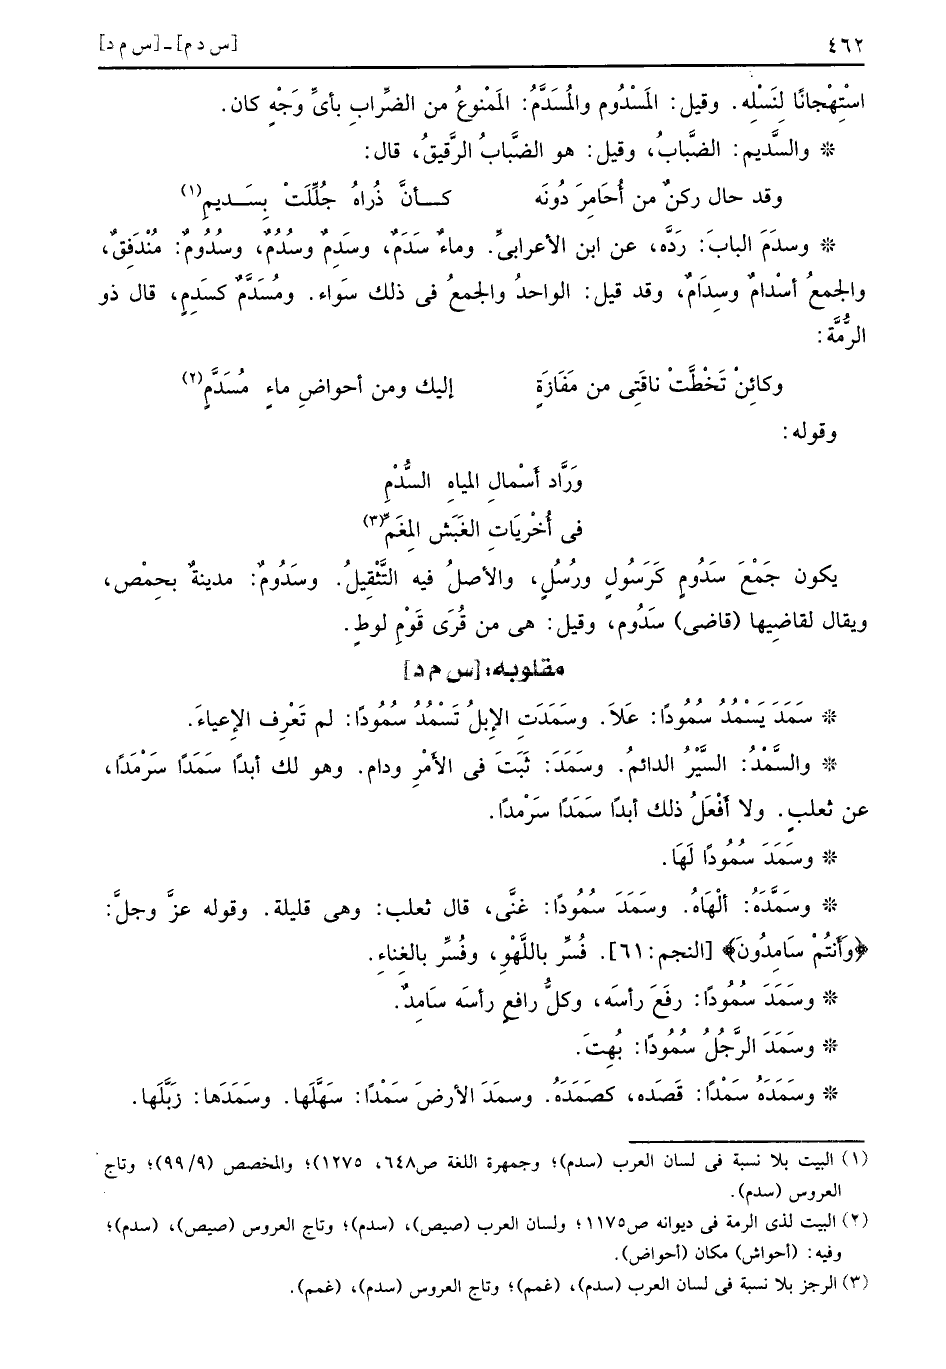 ٤٦٢ [س د م] ـ [س م د]
اسْتِهْجانًا لِنَسْلِه. وقيل: المَسْدُوم والمُسَدَّمُ: المَمْنوعُ من الضِّرابِ بأىِّ وَجْهٍ كان.
* والسَّديم: الضَّبابُ، وقيل: هو الضَّبابُ الرَّقيقُ، قال:
وقد حال ركنٌ من أُحَامِرَ دُونَه كــأنَّ ذُراهُ جُلِّلَتْ بِسَــديمِ(١)
* وسدَمَ البابَ: رَدَّه، عن ابن الأعرابىِّ. وماءٌ سَدَمٌ، وسَدِمٌ وسُدُمٌ، وسُدُومٌ: مُنْدَفِقٌ،
والجمعُ أسْدامٌ وسِدَامٌ، وقد قيل: الواحدُ والجمعُ فى ذلك سَواء. ومُسَدَّمٌ كسَدِمٍ، قال ذو
الرُّمَّة:
وكائِنْ تَخْطَّتْ ناقَتِى من مَفَازَةٍ إليك ومن أحواضِ ماءٍ مُسَدَّمِ(٢)
وقوله:
وَرَّاد أَسْمالِ المياهِ السُّدْمِ
فى أُخْرِيَاتِ الغَبَشِ المِغَمِّ(٣)
يكون جَمْعَ سَدُومٍ كَرَسُولٍ ورُسُلٍ، والأصلُ فيه التَّثْقِيلُ. وسَدُومٌ: مدينةٌ بحِمْص،
ويقال لقاضِيها (قاضى) سَدُوم، وقيل: هى من قُرَى قَوْمِ لوطٍ.
مقلوبه: [س م د]
* سَمَدَ يَسْمُدُ سُمُودًا: عَلاَ. وسَمَدَتِ الإبلُ تَسْمُدُ سُمُودًا: لم تَعْرِف الإعياءَ.
* والسَّمْدُ: السَّيْرُ الدائمُ. وسَمَدَ: ثَبَتَ فى الأمْرِ ودام. وهو لك أبدًا سَمَدًا سَرْمَدًا،
عن ثعلبٍ. ولا أَفْعَلُ ذلك أبدًا سَمَدًا سَرْمدًا.
* وسَمَدَ سُمُودًا لَهَا.
* وسَمَّدَهُ: ألْهَاهُ. وسَمَدَ سُمُودًا: غنَّى، قال ثعلب: وهى قليلة. وقوله عزَّ وجلَّ:
﴿وَأَنتُمْ سَامِدُونَ﴾ [النجم: ٦١]. فُسِّر باللَّهْوِ، وفُسِّر بالغناءِ.
* وسَمَدَ سُمُودًا: رفَعَ رأسَه، وكلُّ رافعٍ رأسَه سَامِدٌ.
* وسَمَدَ الرَّجُلُ سُمُودًا: بُهِتَ.
* وسَمَدَهُ سَمْدًا: قَصَده، كصَمَدَهُ. وسمَدَ الأرضَ سَمْدًا: سَهَّلَها. وسَمَدَها: زَبَّلَها.
(١) البيت بلا نسبة فى لسان العرب (سدم)؛ وجمهرة اللغة ص٦٤٨، ١٢٧٥)؛ والمخصص (٩/ ٩٩)؛ وتاج
العروس (سدم).
(٢) البيت لذى الرمة فى ديوانه ص١١٧٥؛ ولسان العرب (صيص)، (سدم)؛ وتاج العروس (صيص)، (سدم)؛
وفيه: (أحواش) مكان (أحواض).
(٣) الرجز بلا نسبة فى لسان العرب (سدم)، (غمم)؛ وتاج العروس (سدم)، (غمم).